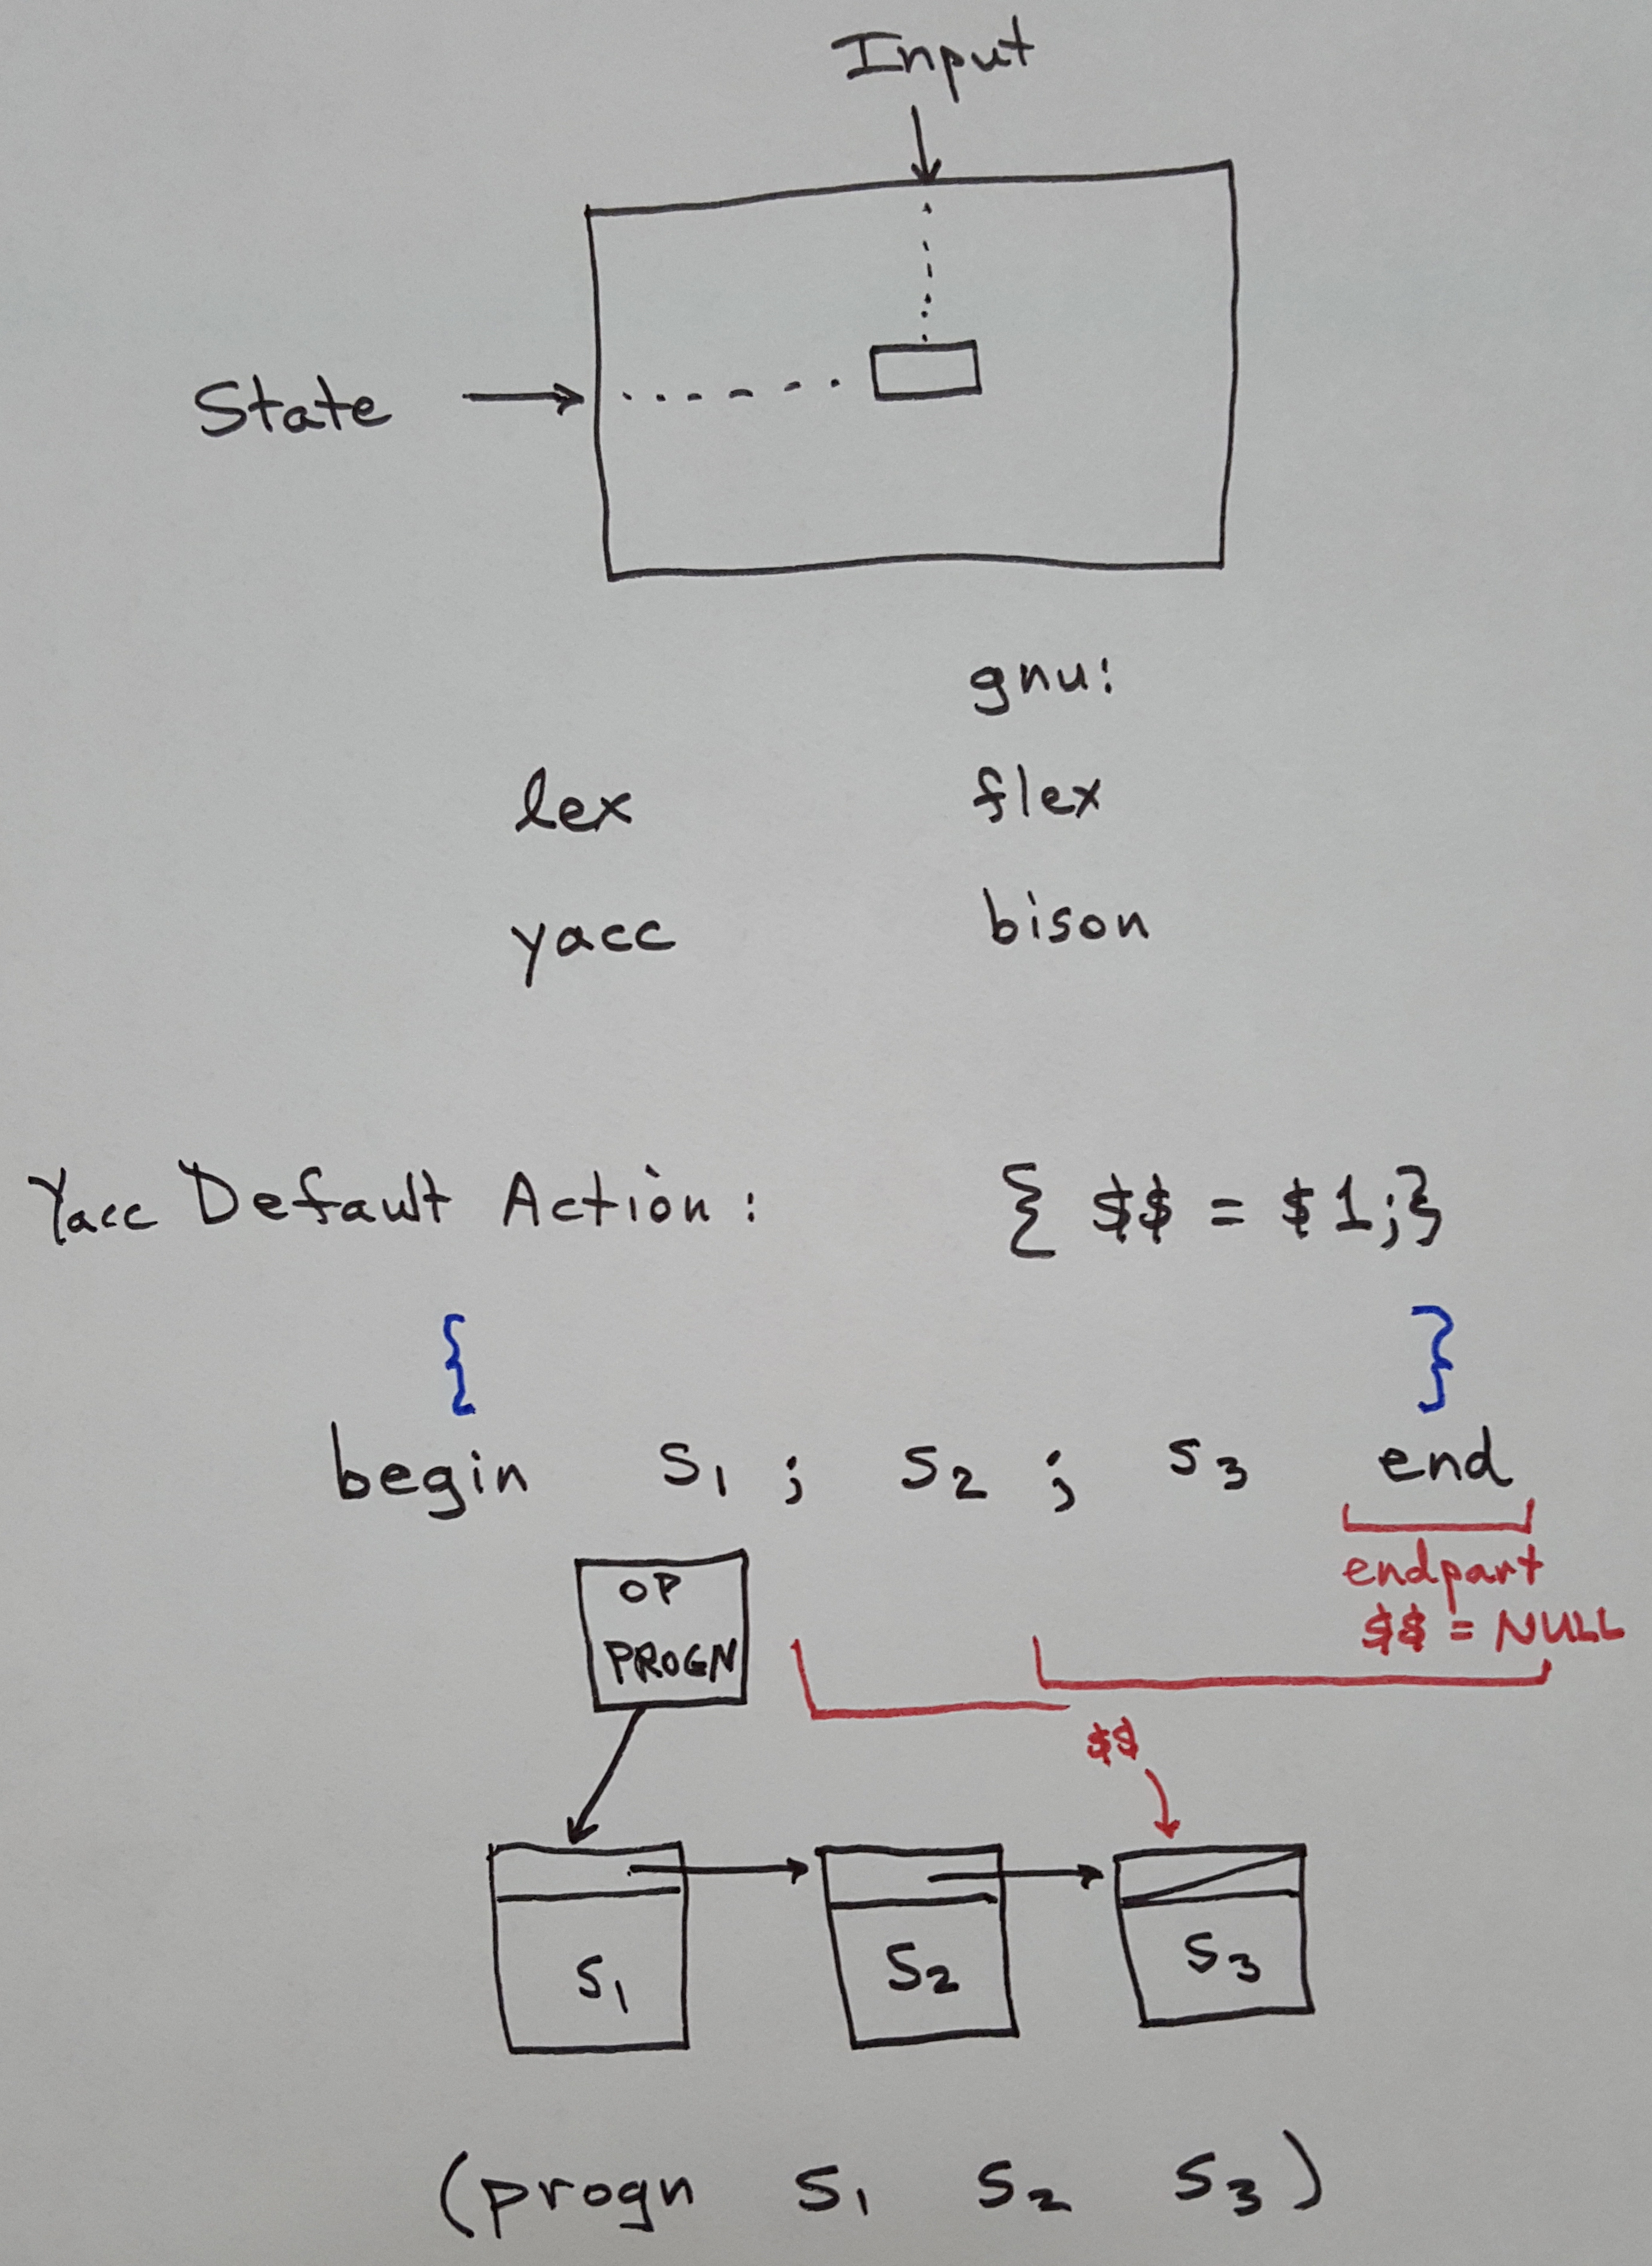 Input
State
gnu:
lex flex
yacc bison
Yacc Default Action: { $$ = $1;}
{ }
begin S1 ; S2 ; S3 end
endpart
$$ = NULL
OP
PROGN
$$
S1 S2 S3
(progn S1 S2 S3)